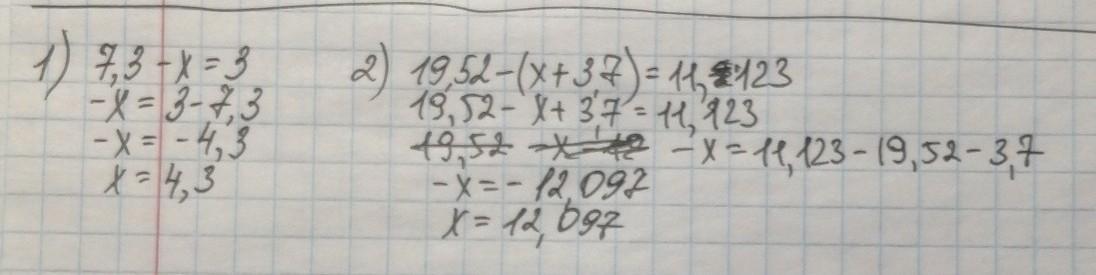 1) 7,3 - x = 3
-x = 3 - 7,3
-x = -4,3
x = 4,3
2) 19,52 - (x + 3,7) = 11,123
19,52 - x + 3,7 = 11,123
19,52 - x = 12 -x = 11,123 - 19,52 - 3,7
-x = - 12,097
x = 12,097